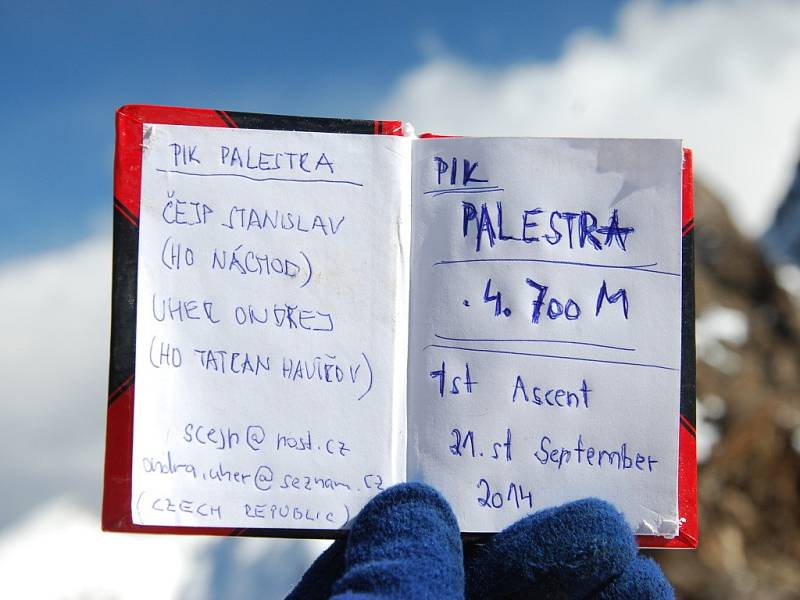 PIK PALESTRA
ČEJP STANISLAV
(HO NÁCHOD)
UHER ONDŘEJ
(HO TATRAN HAVÍŘOV)
scejp@post.cz
ondra.uher@seznam.cz
(CZECH REPUBLIC)
PIK
PALESTRA
. 4. 700 M
1st Ascent
21.st September
2014